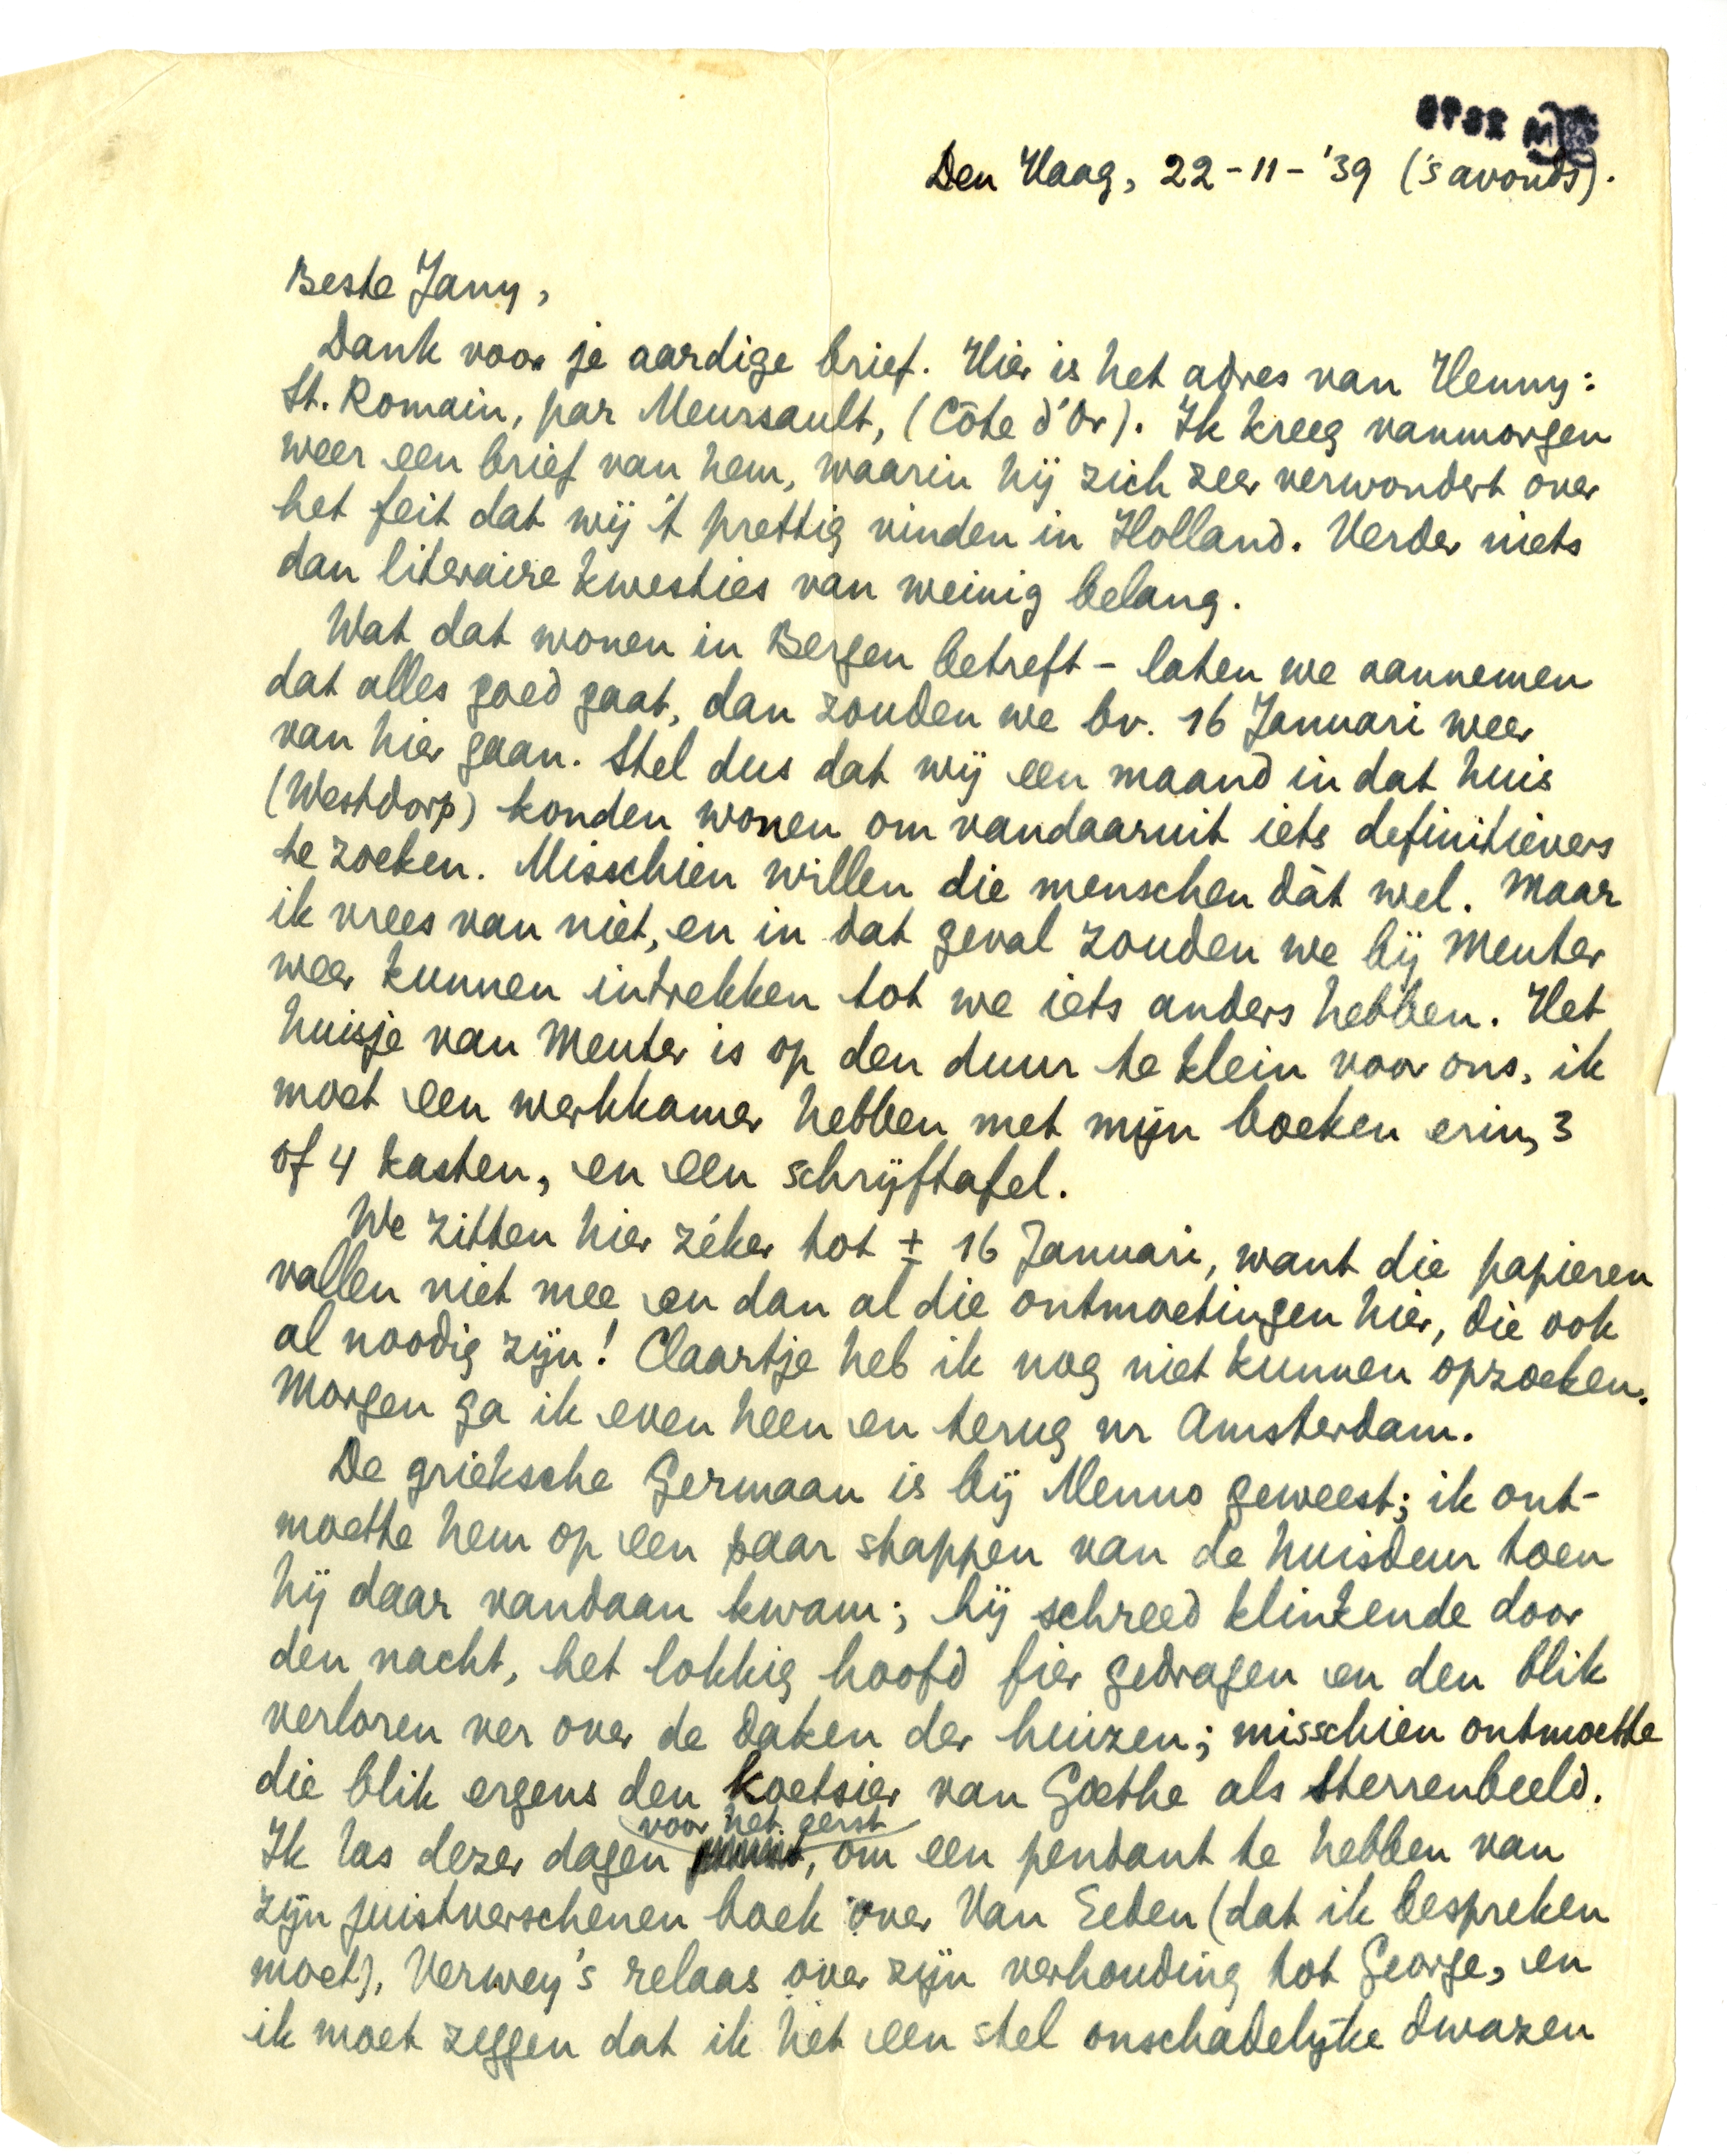 Den Haag, 22-11-'39 ('s avonds).
Beste Jany,
Dank voor je aardige brief. Hier is het adres van Henny:
St. Romain, par Meursault, (Côte d'Or). Ik kreeg vanmorgen
weer een brief van hem, waarin hij zich zeer verwondert over
het feit dat wij 't prettig vinden in Holland. Verder niets
dan literaire kwesties van weinig belang.
Wat dat wonen in Bergen betreft – laten we aannemen
dat alles goed gaat, dan zouden we bv. 16 Januari weer
van hier gaan. Stel dus dat wij een maand in dat huis
(Westdorp) konden wonen om vandaaruit iets definitievers
te zoeken. Misschien willen die menschen dàt wel. Maar
ik vrees van niet, en in dat geval zouden we bij Menter
weer kunnen intrekken tot we iets anders hebben. Het
huisje van Menter is op den duur te klein voor ons, ik
moet een werkkamer hebben met mijn boeken erin, 3
of 4 kasten, en een schrijftafel.
We zitten hier zéker tot ± 16 Januari, want die papieren
vallen niet mee en dan al die ontmoetingen hier, die ook
al noodig zijn! Claartje heb ik nog niet kunnen opzoeken.
Morgen ga ik even heen en terug nr Amsterdam.
De grieksche Germaan is bij Menno geweest; ik ont-
moette hem op een paar stappen van de huisdeur toen
hij daar vandaan kwam; hij schreed klinkende door
den nacht, het lokkig hoofd fier gedragen en den blik
verloren ver over de daken der huizen; misschien ontmoette
die blik ergens den koetsier van Goethe als sterrenbeeld.
voor het eerst
Ik las dezer dagen , om een pendant te hebben van
zijn juistverschenen boek over Van Eeden (dat ik bespreken
moet), Verwey's relaas over zijn verhouding tot George, en
ik moet zeggen dat ik het een stel onschadelijke dwazen